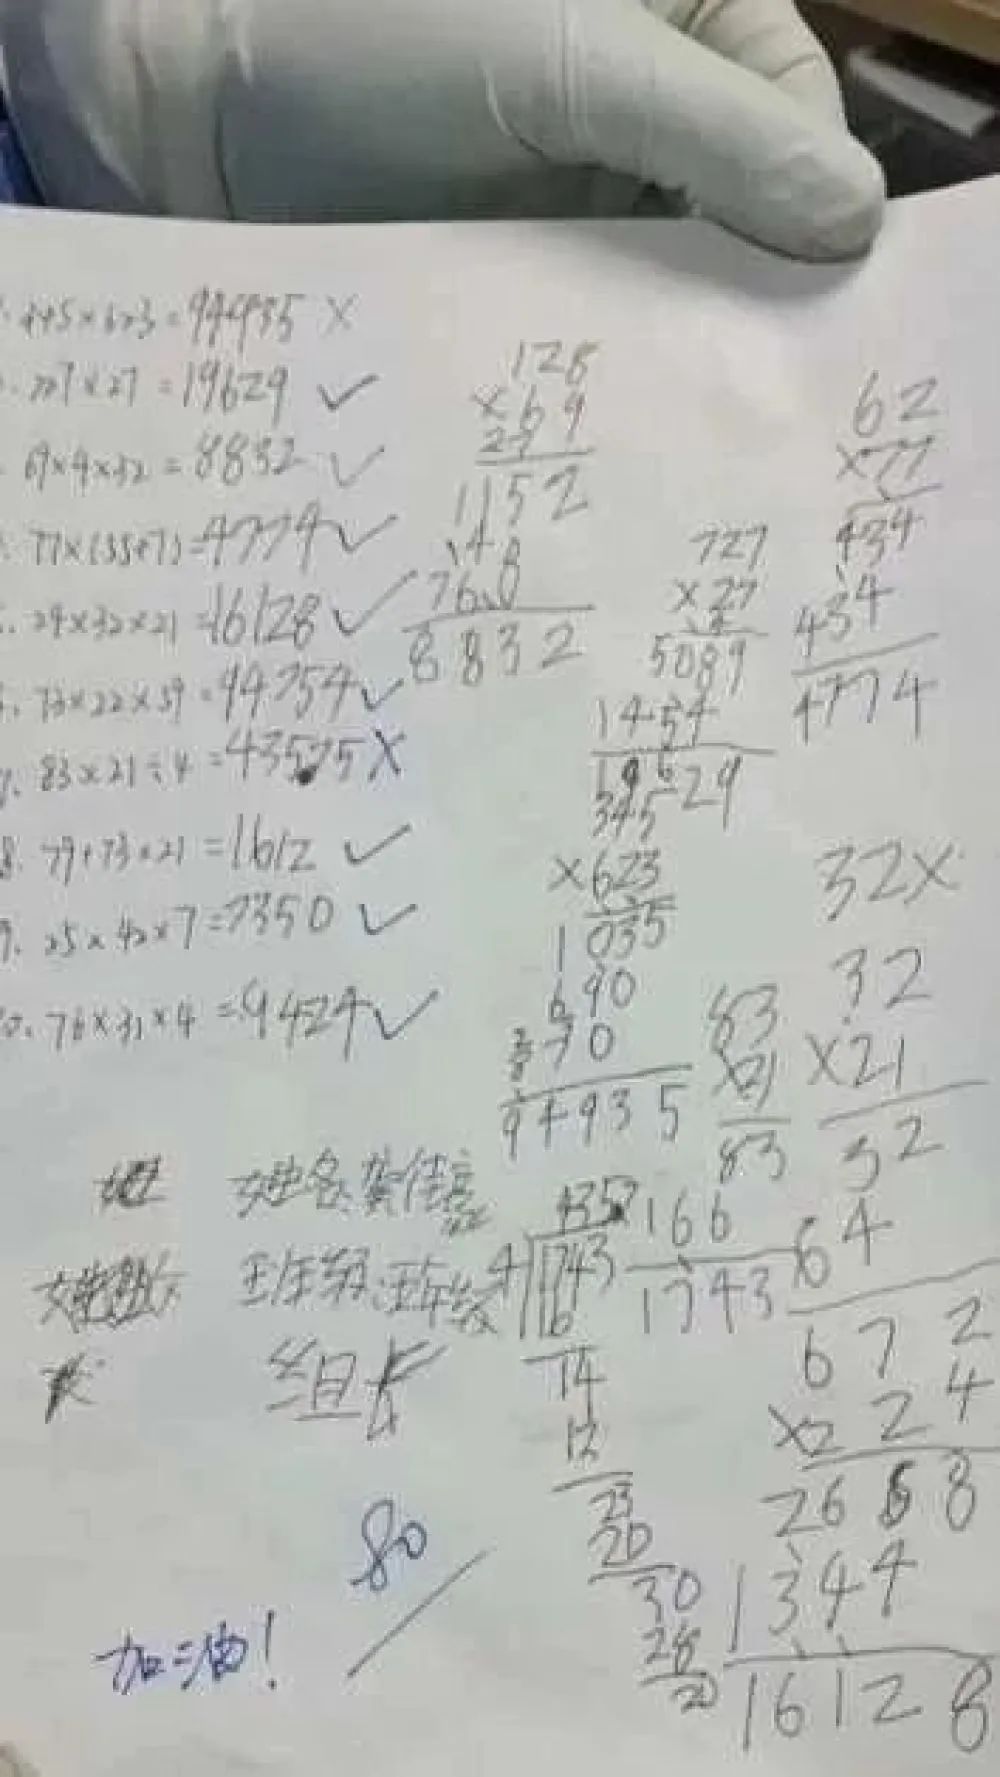 445×623=94935 ×
727×27=19629 ✓
69×4×32=8832 ✓
77×(55+7)=4774 ✓
24×32×21=16128 ✓
73×22×59=94754 ✓
7. 83×21÷4=435.75 ×
8. 79+73×21=1612 ✓
9. 25×42×7=7350 ✓
10. 76×31×4=9424 ✓
128
×69
1152
768
8832
62
×77
434
434
4774
727
×27
5089
1454
19629
345
×623
1035
690
70
94935
32×
32
×21
32
64
672
×24
2688
1344
16128
83
×21
83
166
1743
4357
4 1743
16
14
12
23
20
30
28
20
姓名:黄佳
班级:班级
组长
80
加油!